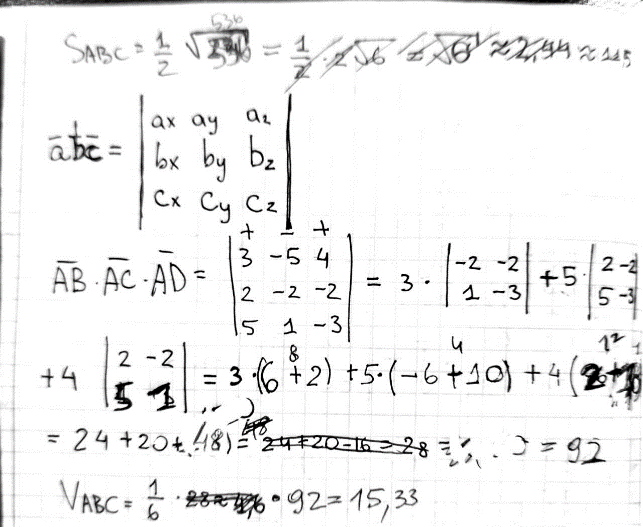 S_ABC = 1/2 √536 = 1/2 · 2√6 = √6 ≈ 2,44 ≈ 11,5
a̅b̅c̅ = | ax ay az |
| bx by bz |
| cx cy cz |
+ − +
A̅B̅ · A̅C̅ · A̅D̅ = | 3 −5 4 | = 3 · | −2 −2 | + 5 · | 2 −2 |
| 2 −2 −2 | | 1 −3 | | 5 −3 |
| 5 1 −3 |
8 4 12
+4 | 2 −2 | = 3 · (6+2) + 5 · (−6+10) + 4 (
| 5 1 |
= 24 + 20 + 48 = 24+20−16 = 28 = 92
V_ABC = 1/6 · 92 = 15,33